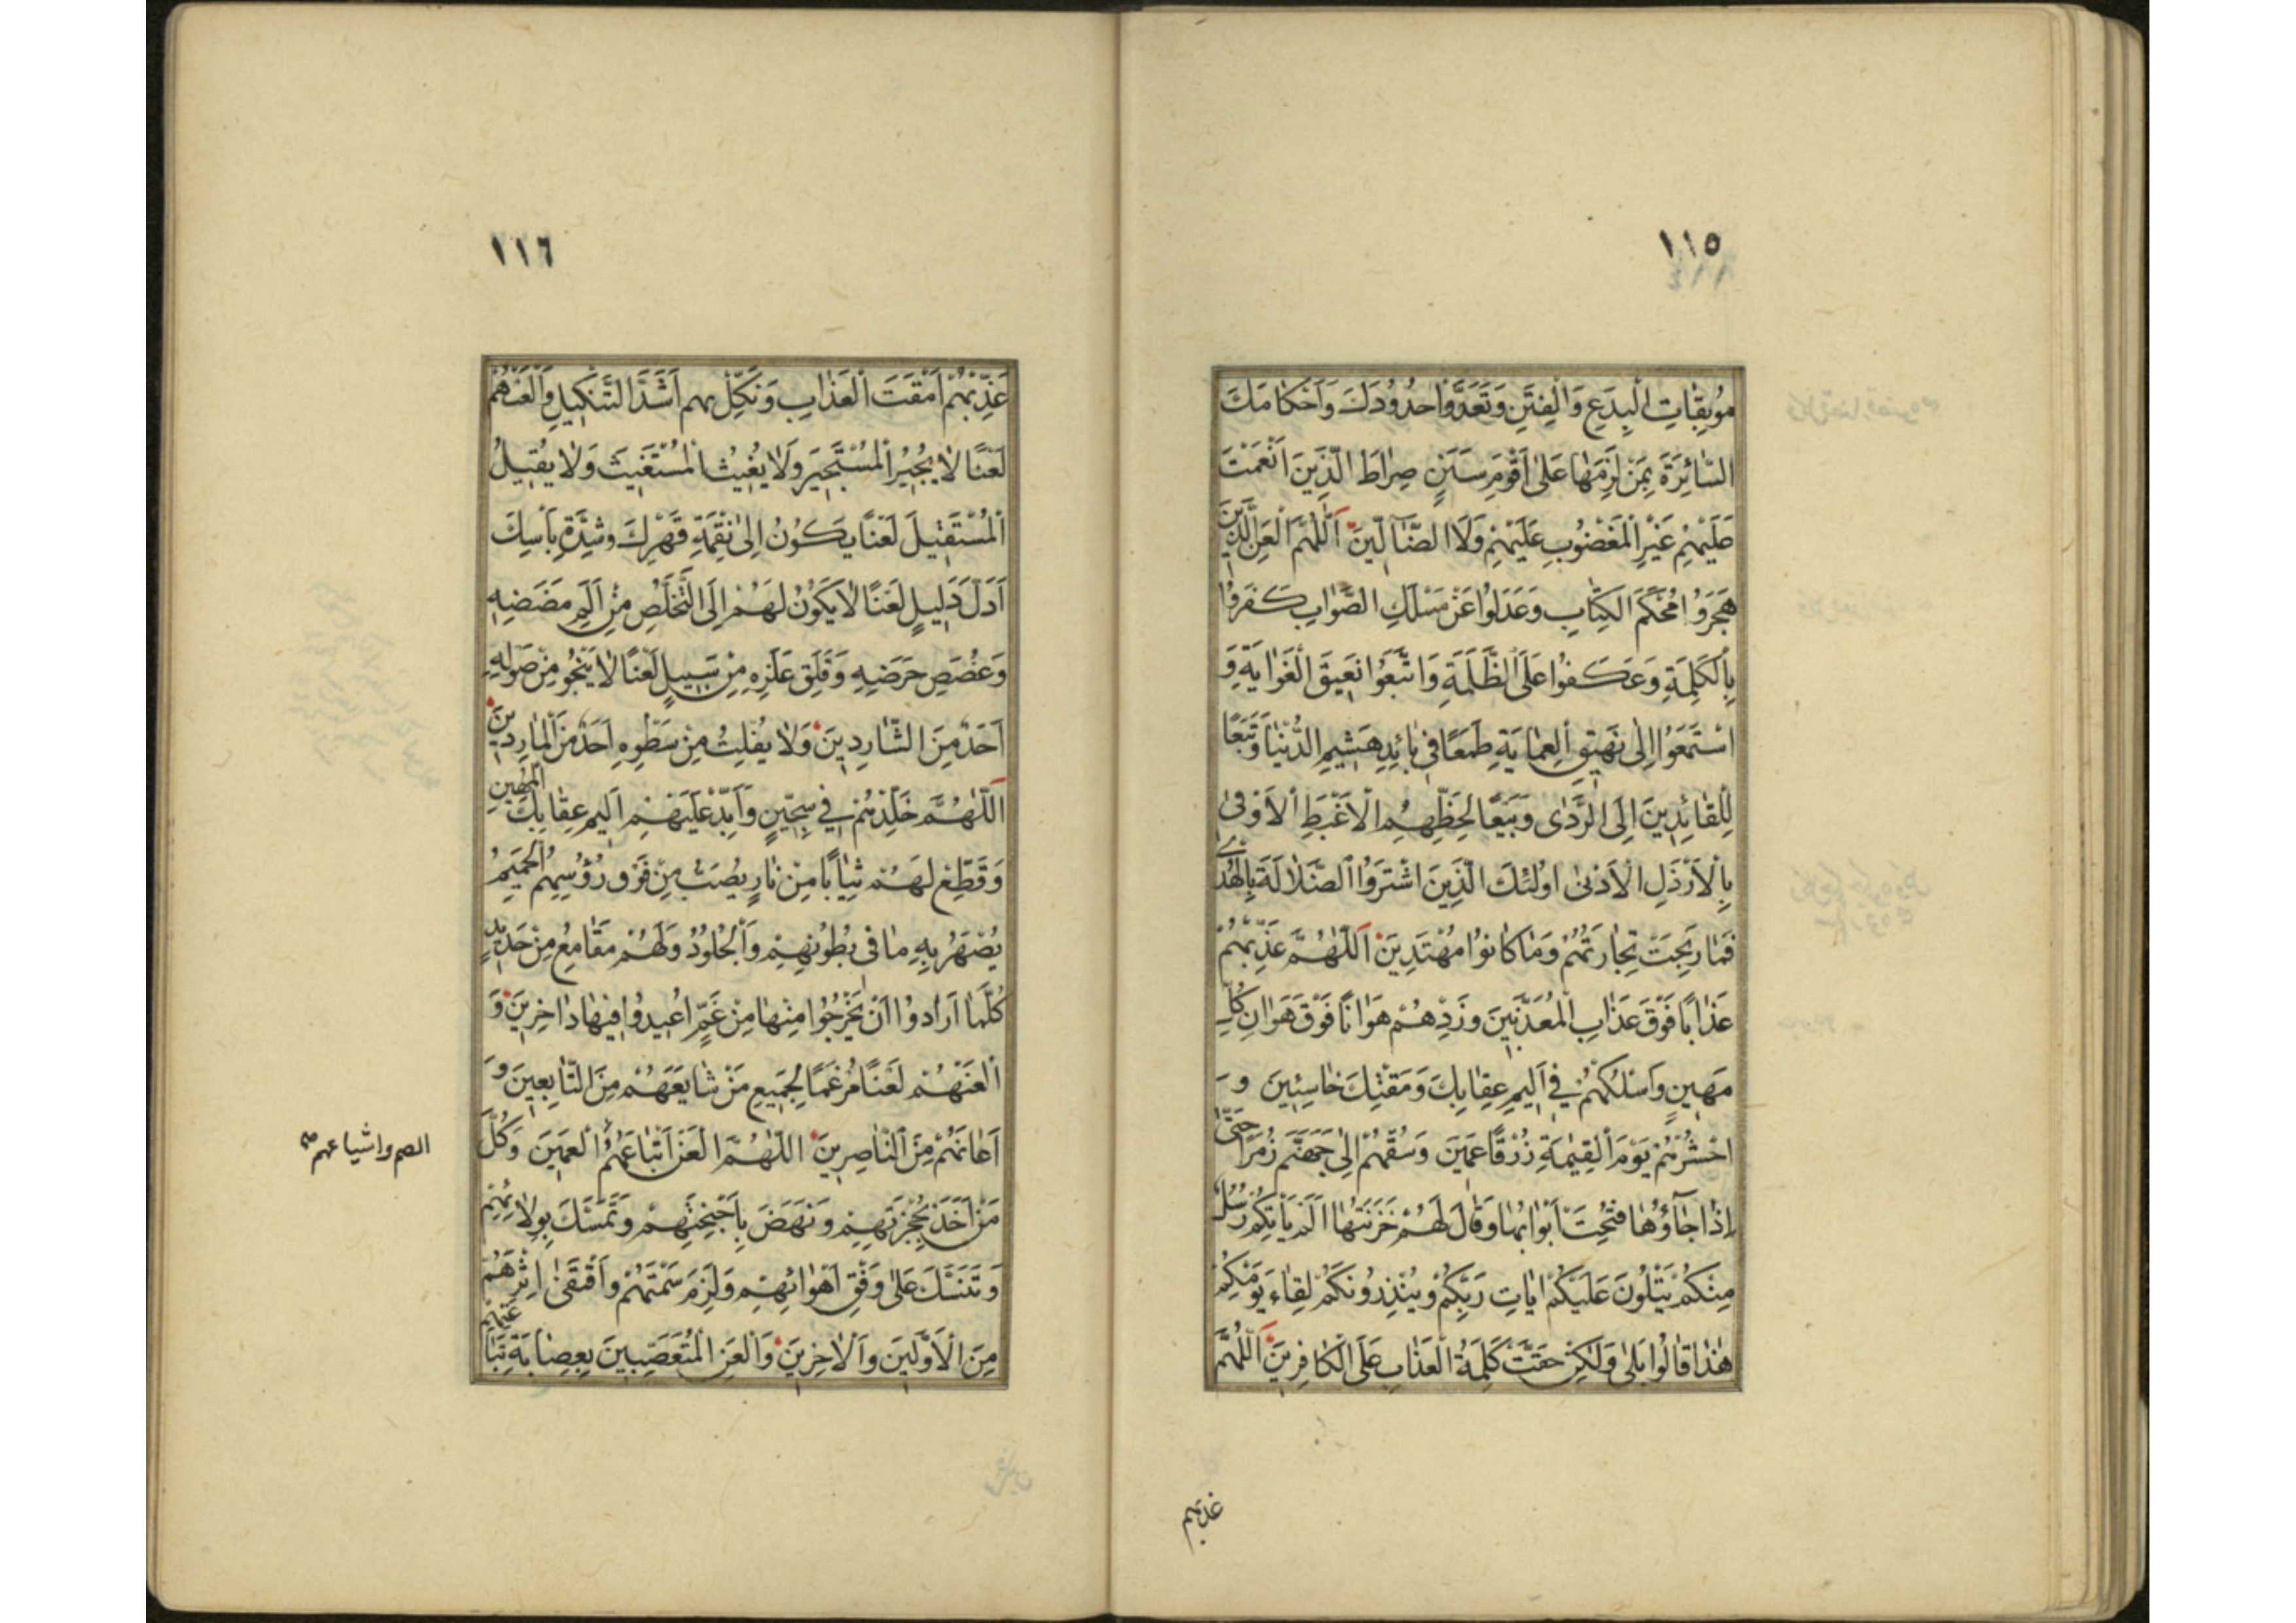 ١١٥
مُوبِقَاتِ الْبِدَعِ وَالْفِتَنِ وَتَعَدَّوْا حُدُودَكَ وَاَحْكَامَكَ
السَّائِرَةَ بِمَنْ لَزِمَهَا عَلىٰ اَقْوَمِ سَنَنٍ صِرَاطَ الَّذِينَ اَنْعَمْتَ
عَلَيْهِمْ غَيْرِ الْمَغْضُوبِ عَلَيْهِمْ وَلَا الضَّآلِّينَ اَللّٰهُمَّ الْعَنِ الَّذِينَ
هَجَرُوا مُحْكَمَ الْكِتَابِ وَعَدَلُوا عَنْ مَسْلَكِ الصَّوَابِ كَفَرُوا
بِالْكَلِمَةِ وَعَكَفُوا عَلَى الظَّلَمَةِ وَاتَّبَعُوا نَعِيقَ الْغَوَايَةِ وَ
اسْتَمَعُوا اِلىٰ نَهِيقِ الْعِمَايَةِ طَمَعًا فِي بَائِدِ هَشِيمِ الدُّنْيَا وَتَبَعًا
لِلْقَائِدِينَ اِلَى الرَّدٰى وَبَيْعًا لِحَظِّهِمِ الْاَغْبَطِ الْاَوْفىٰ
بِالْاَرْذَلِ الْاَدْنىٰ اُولٰئِكَ الَّذِينَ اشْتَرَوُا الضَّلَالَةَ بِالْهُدٰى
فَمَا رَبِحَتْ تِجَارَتُهُمْ وَمَا كَانُوا مُهْتَدِينَ اَللّٰهُمَّ عَذِّبْهُمْ
عَذَابًا فَوْقَ عَذَابِ الْمُعَذَّبِينَ وَزِدْهُمْ هَوَانًا فَوْقَ هَوَانِ كُلِّ
مَهِينٍ وَاسْلُكْهُمْ فِي اَلِيمِ عِقَابِكَ وَمَقْتِكَ خَاسِئِينَ وَ
احْشُرْهُمْ يَوْمَ الْقِيٰمَةِ زُرْقًا عَمِينَ وَسُقْهُمْ اِلىٰ جَهَنَّمَ زُمَرًا حَتّٰى
اِذَا جَآؤُهَا فُتِحَتْ اَبْوَابُهَا وَقَالَ لَهُمْ خَزَنَتُهَا اَلَمْ يَأْتِكُمْ رُسُلٌ
مِنْكُمْ يَتْلُونَ عَلَيْكُمْ اٰيَاتِ رَبِّكُمْ وَيُنْذِرُونَكُمْ لِقَاءَ يَوْمِكُمْ
هٰذَا قَالُوا بَلىٰ وَلٰكِنْ حَقَّتْ كَلِمَةُ الْعَذَابِ عَلَى الْكَافِرِينَ اَللّٰهُمَّ
عذبهم
١١٦
عَذِّبْهُمْ اَمْقَتَ الْعَذَابِ وَنَكِّلْ بِهِمْ اَشَدَّ التَّنْكِيلِ وَالْعَنْهُمْ
لَعْنًا لَا يُجِيرُ الْمُسْتَجِيرَ وَلَا يُغِيثُ الْمُسْتَغِيثَ وَلَا يُقِيلُ
الْمُسْتَقِيلَ لَعْنًا يَكُونُ اِلىٰ نِقْمَةِ قَهْرِكَ وَشِدَّةِ بَأْسِكَ
اَدَلَّ دَلِيلٍ لَعْنًا لَا يَكُونُ لَهُمْ اِلَى التَّخَلُّصِ مِنْ اَلَمِ مَضَضِهِ
وَغُصَصِ حَرَضِهِ وَقَلَقِ عَلَزِهِ مِنْ سَبِيلٍ لَعْنًا لَا يَنْجُو مِنْ صَوْلِهِ
اَحَدٌ مِنَ الشَّارِدِينَ وَلَا يُفْلِتُ مِنْ سَطْوِهِ اَحَدٌ مِنَ الْمَارِدِينَ
اَللّٰهُمَّ خَلِّدْهُمْ فِي سِجِّينٍ وَاَبِّدْ عَلَيْهِمْ اَلِيمَ عِقَابِكَ الْمُهِينِ
وَقَطِّعْ لَهُمْ ثِيَابًا مِنْ نَارٍ يُصَبُّ مِنْ فَوْقِ رُؤُسِهِمُ الْحَمِيمُ
يُصْهَرُ بِهِ مَا فِي بُطُونِهِمْ وَالْجُلُودُ وَلَهُمْ مَقَامِعُ مِنْ حَدِيدٍ
كُلَّمَا اَرَادُوا اَنْ يَخْرُجُوا مِنْهَا مِنْ غَمٍّ اُعِيدُوا فِيهَا دَاخِرِينَ وَ
الْعَنْهُمْ لَعْنًا مُرْغَمًا لِجَمِيعِ مَنْ شَايَعَهُمْ مِنَ التَّابِعِينَ وَ
اَعَانَهُمْ مِنَ النَّاصِرِينَ اللّٰهُمَّ الْعَنْ اَتْبَاعَهُمُ الْعَمِينَ وَكُلَّ
الصم واشياعهم صح
مَنْ اَخَذَ بِحُجْزَتِهِمْ وَنَهَضَ بِاَجْنِحَتِهِمْ وَتَمَسَّكَ بِوِلَايَتِهِمْ
وَتَنَسَّكَ عَلىٰ وَفْقِ اَهْوَائِهِمْ وَلَزِمَ سَمْتَهُمْ وَاقْتَفىٰ اِثْرَهُمْ
مِنَ الْاَوَّلِينَ وَالْاٰخِرِينَ وَالْعَنِ الْمُتَعَصِّبِينَ بِعِصَابَةِ